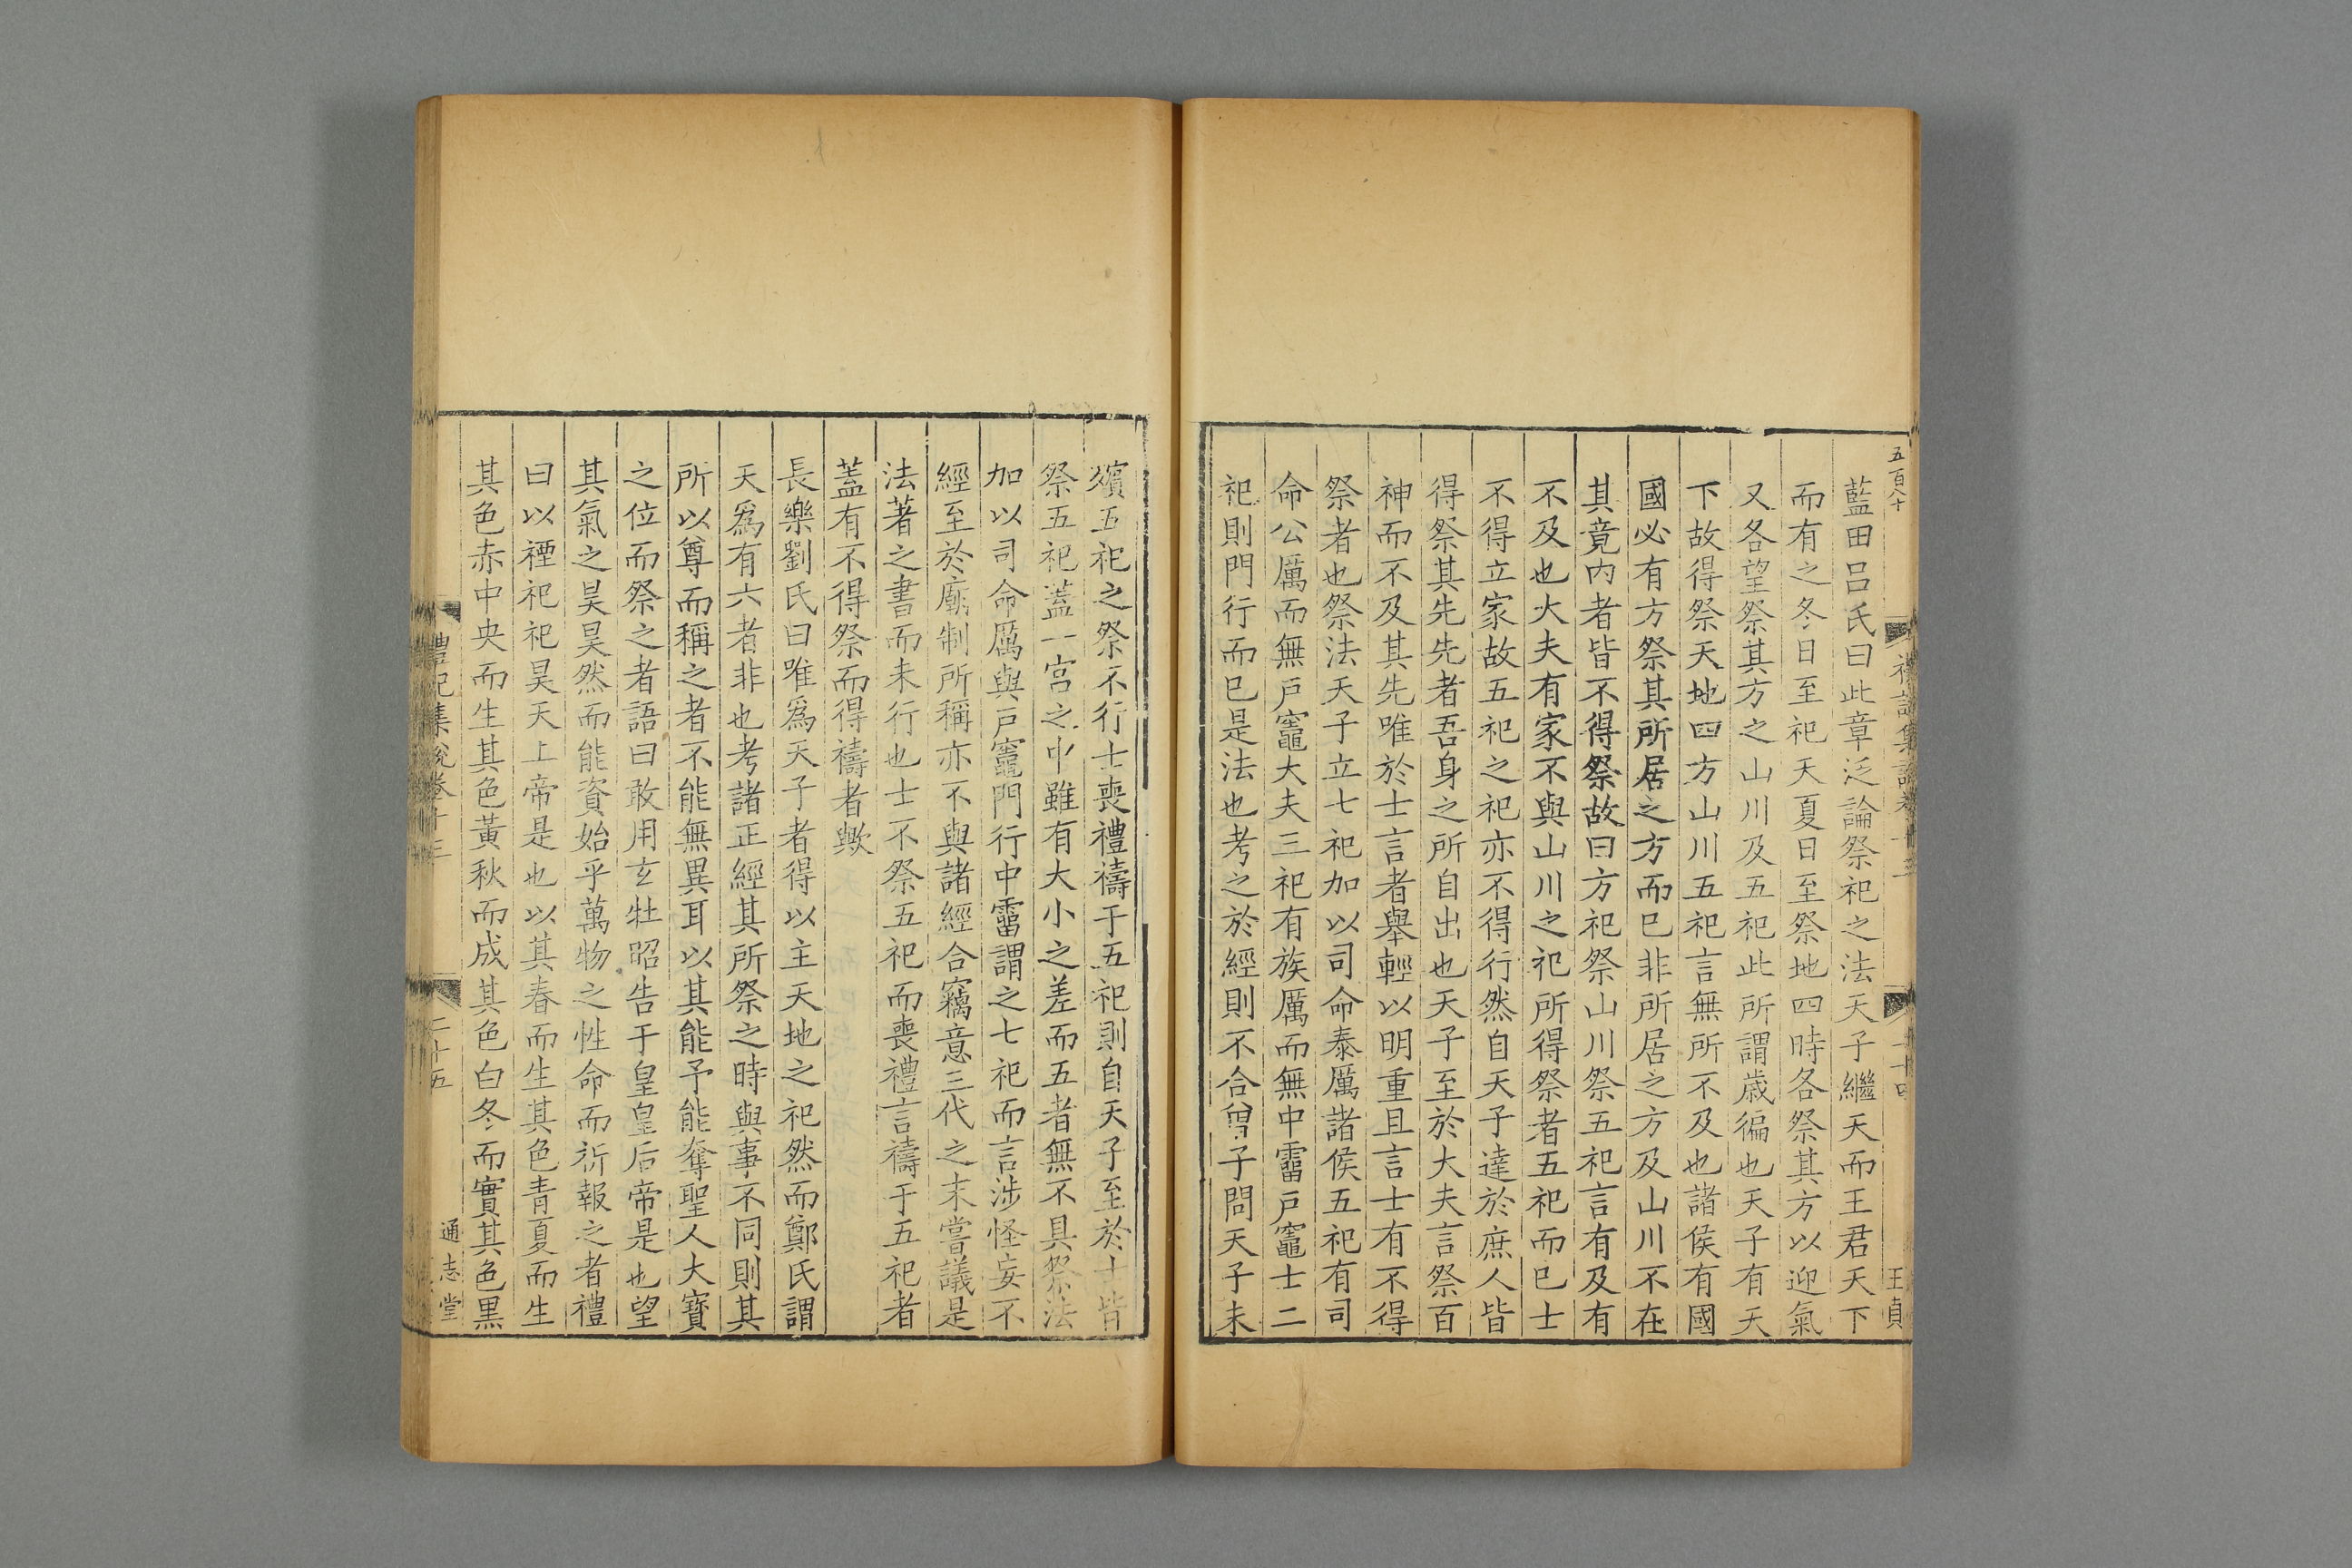 五百八十
王貞
藍田呂氏曰此章泛論祭祀之法天子繼天而王君天下
而有之冬日至祀天夏日至祭地四時各祭其方以迎氣
又各望祭其方之山川及五祀此所謂歲徧也天子有天
下故得祭天地四方山川五祀言無所不及也諸侯有國
國必有方祭其所居之方而已非所居之方及山川不在
其竟内者皆不得祭故曰方祀祭山川祭五祀言有及有
不及也大夫有家不與山川之祀所得祭者五祀而已士
不得立家故五祀之祀亦不得行然自天子達於庶人皆
得祭其先先者吾身之所自出也天子至於大夫言祭百
神而不及其先唯於士言者舉輕以明重且言士有不得
祭者也祭法天子立七祀加以司命泰厲諸侯五祀有司
命公厲而無戶竈大夫三祀有族厲而無中霤戶竈士二
祀則門行而已是法也考之於經則不合曾子問天子未
殯五祀之祭不行士喪禮禱于五祀則自天子至於士皆
祭五祀蓋一宮之中雖有大小之差而五者無不具祭法
加以司命厲與戶竈門行中霤謂之七祀而言涉怪妄不
經至於廟制所稱亦不與諸經合竊意三代之末嘗議是
法著之書而未行也士不祭五祀而喪禮言禱于五祀者
蓋有不得祭而得禱者歟
長樂劉氏曰唯爲天子者得以主天地之祀然而鄭氏謂
天爲有六者非也考諸正經其所祭之時與事不同則其
所以尊而稱之者不能無異耳以其能予能奪聖人大寶
之位而祭之者語曰敢用玄牡昭告于皇皇后帝是也望
其氣之昊昊然而能資始乎萬物之性命而祈報之者禮
曰以禋祀祀昊天上帝是也以其春而生其色青夏而生
其色赤中央而生其色黃秋而成其色白冬而實其色黑
禮記集說卷十三
二十五
通志堂